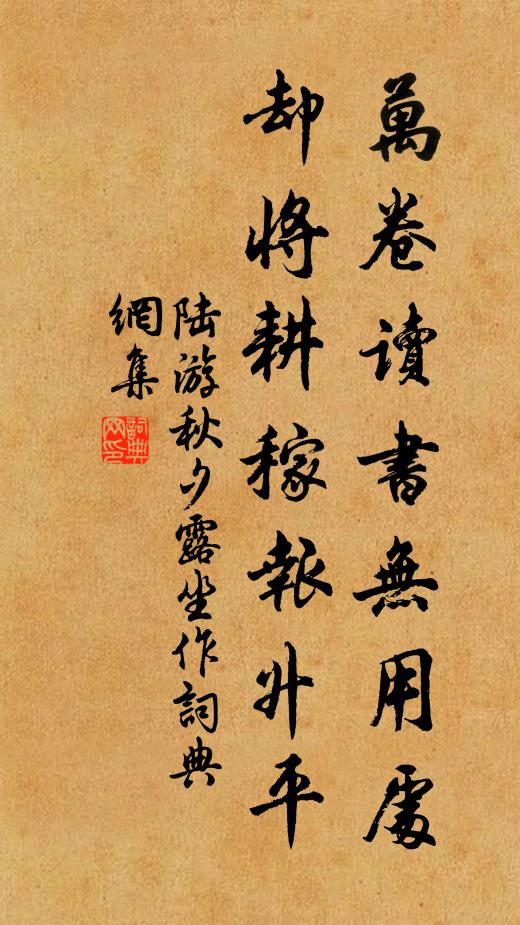 萬卷讀書無用處
却將耕稼報升平
陆游秋夕露坐作詞典
網集
詞典
网印